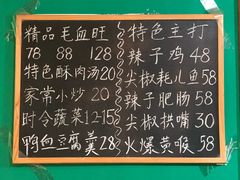 精品毛血旺
78 88 128
特色酥肉汤20
家常小炒20
时令蔬菜12-15
鸭血豆腐羹28
特色主打
辣子鸡48
尖椒耗儿鱼58
辣子肥肠58
尖椒拱嘴30
火爆黄喉58